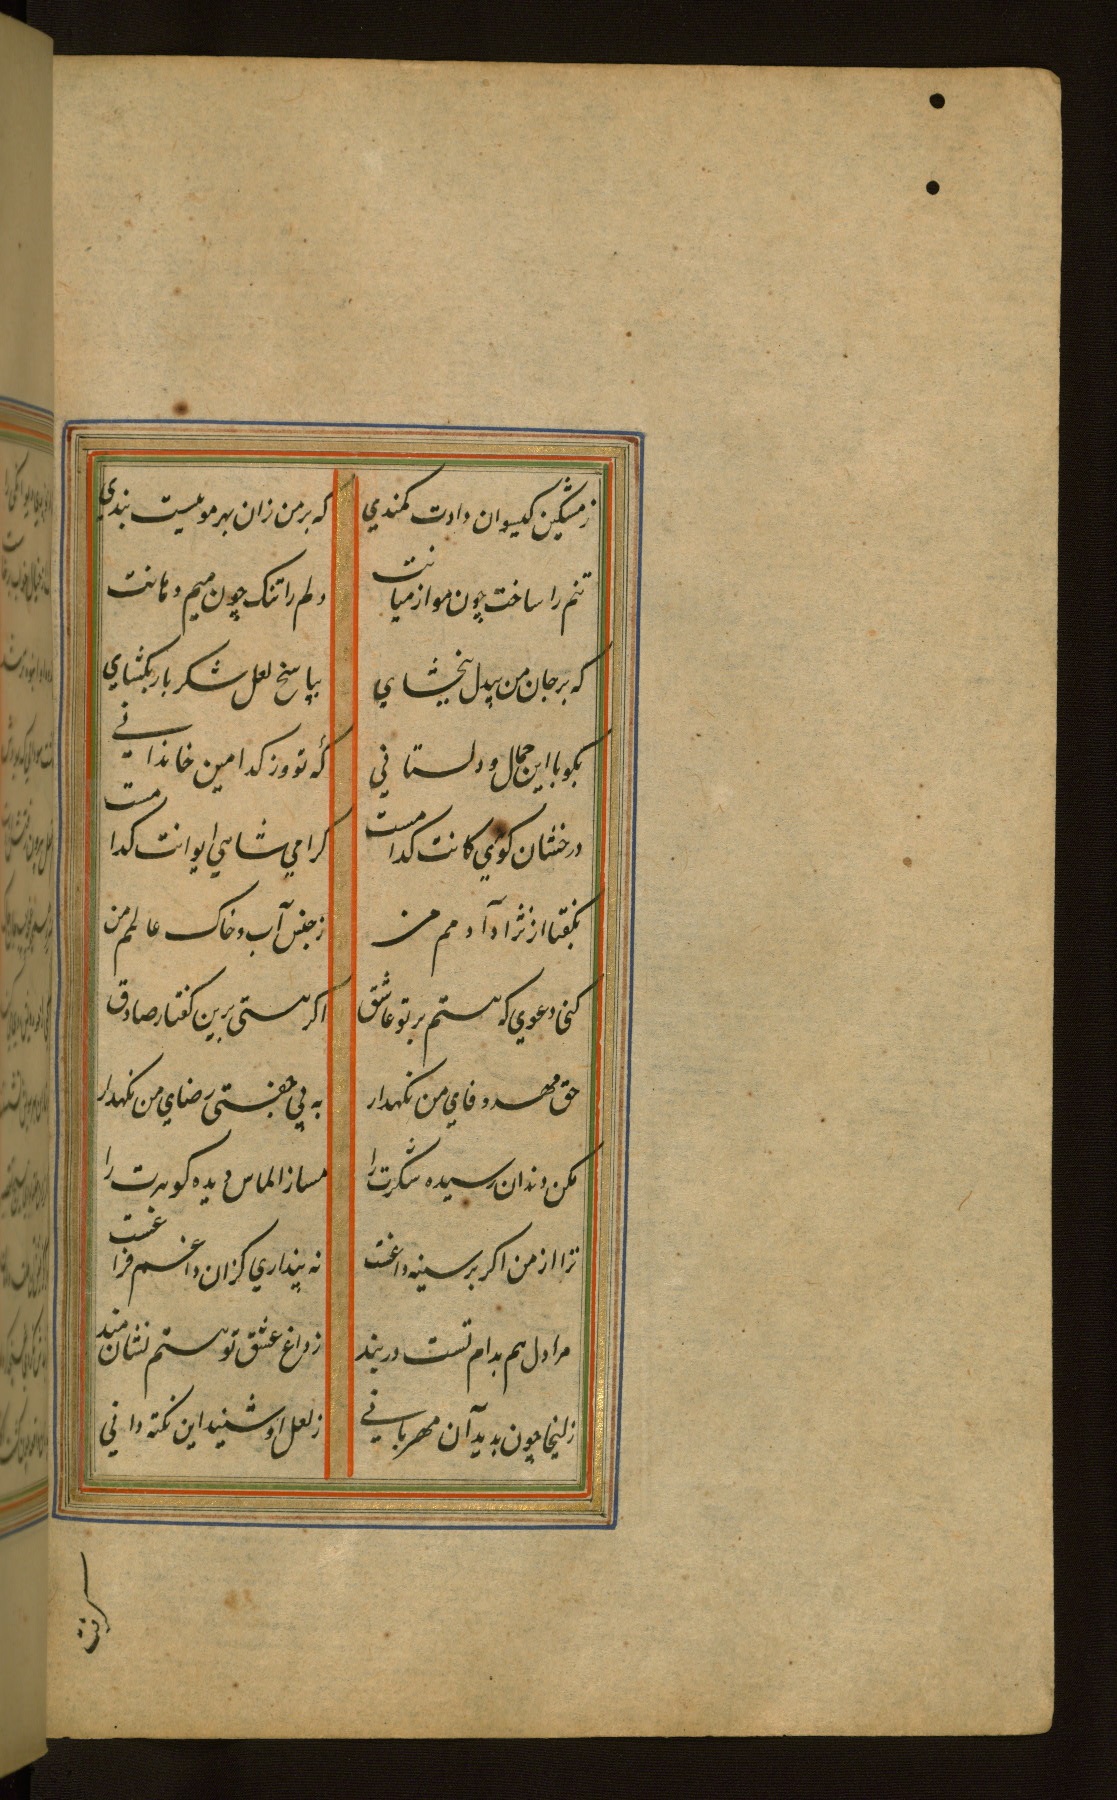 ز مشکین کیسوان دادت کمندي که بر من زان بهر موییست بندي
تنم را ساخت چون مو از میانت دلم را تنک چون میم دهانت
که بر جان من بیدل ببخشاي بپاسخ لعل شکر بار بکشاي
بکو با این جمال و دلستاني که تو وز کدامین خانداني
درخشان کوهري کانت کدامست کرامي شاهي ایوانت کدامست
بکفتا از نژاد آدمم من ز جنس آب و خاک عالمم من
کني دعوي که هستم بر تو عاشق اکر هستي برین کفتار صادق
حق مهر و وفاي من نکهدار به بي جفتي رضاي من نکهدار
مکن دندان رسیده شکرت را مساز الماس دیده کوهرت را
ترا از من اکر بر سینه داغست نه پنداري کزان داغم فراغست
مرا دل هم بدام تست در بند ز داغ عشق تو هستم نشانمند
زلیخا چون بدید آن مهرباني ز لعل او شنید این نکته داني